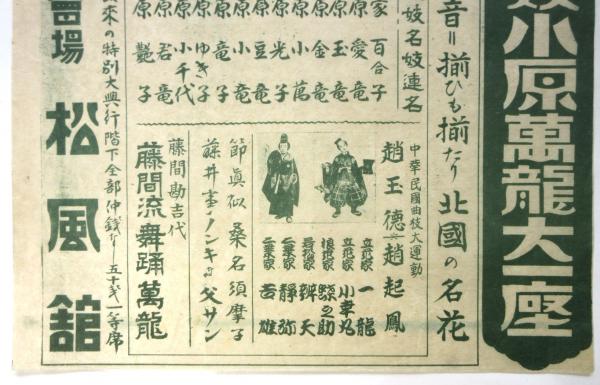 小原萬龍大一座
音＝揃ひも揃たり北國の名花
妓名妓連名
家百合子
原愛竜
原玉竜
原金竜
原小萬
原光子
原豆竜
原小竜
原竜子
原ゆき子
原小千代
原君竜
原艶子
中華民國曲技大運動
趙玉德 趙起鳳
立花家 一龍
立花家 小車丸
浪花家 鯨之助
辨天
二葉家 静弥
二葉家 吉雄
節眞似 桑名須摩子
藤井事ノンキな父サン
藤間勘吉代
藤間流舞踊萬龍
来の特別大興行階下全部仲銭なし 五十銭 一等席
會場 松風舘